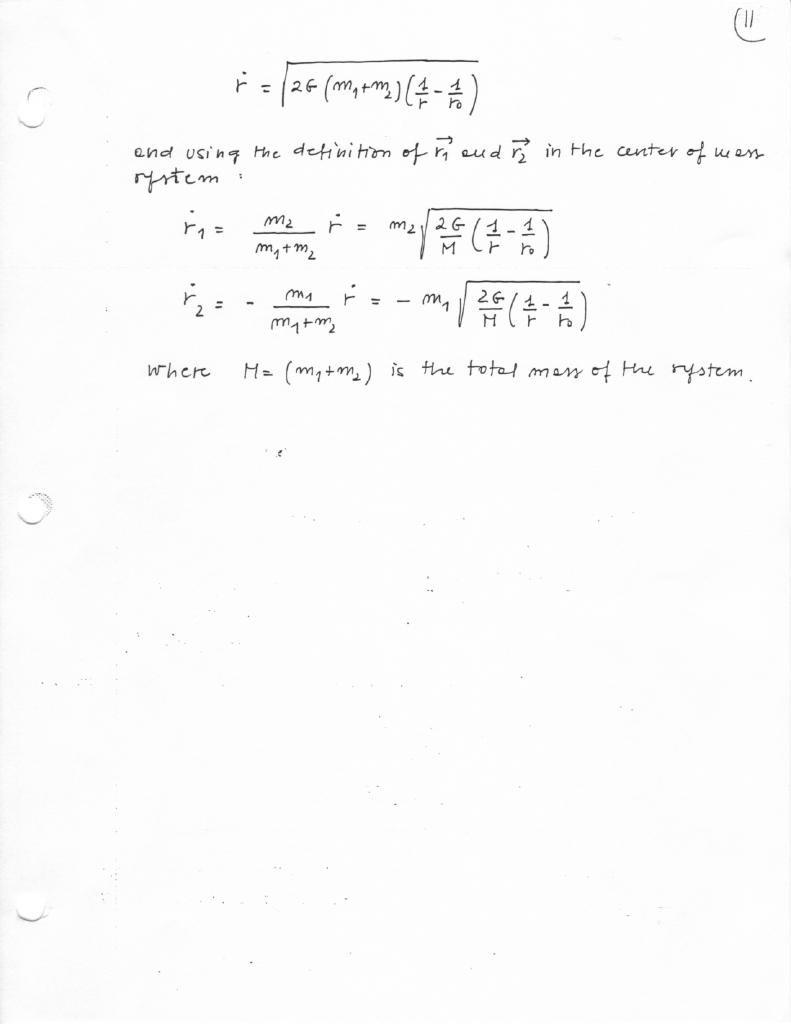 11
ṙ = √(2G (m₁+m₂) (1/r - 1/r₀))
and using the definition of r⃗₁ and r⃗₂ in the center of mass
system :
ṙ₁ = m₂/(m₁+m₂) ṙ = m₂ √(2G/M (1/r - 1/r₀))
ṙ₂ = - m₁/(m₁+m₂) ṙ = - m₁ √(2G/M (1/r - 1/r₀))
where M = (m₁+m₂) is the total mass of the system.